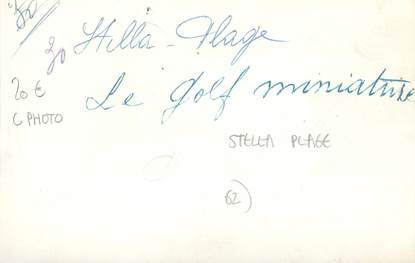 30 Stella - Plage
20 €
Le golf miniature
C PHOTO
STELLA PLAGE
62)